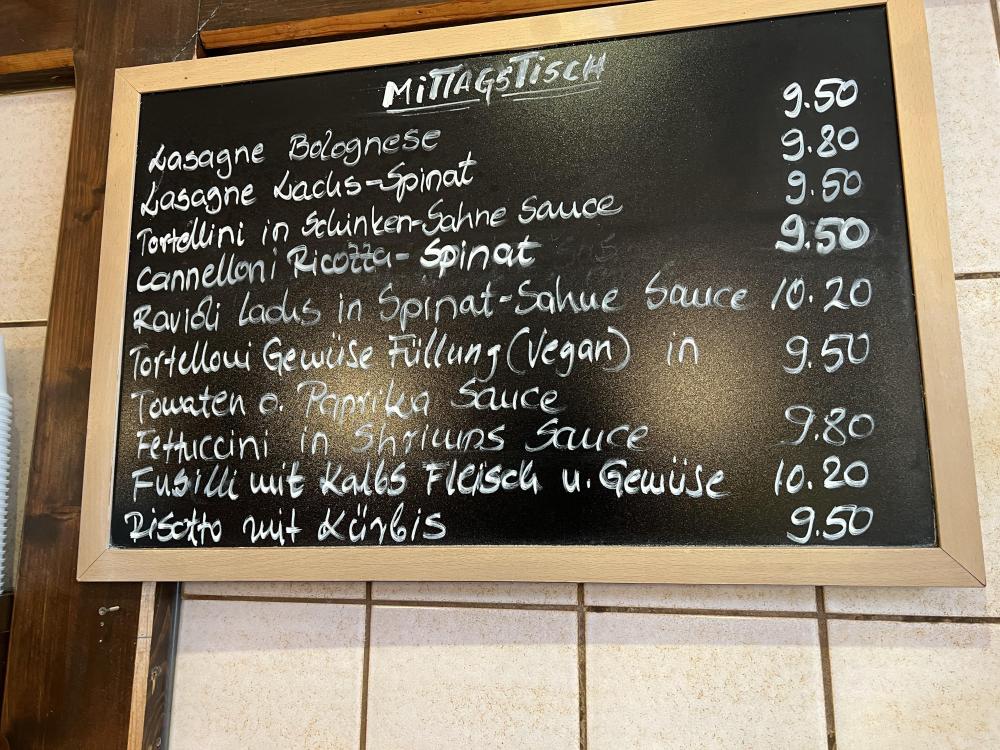 MITTAGSTISCH
Lasagne Bolognese 9.50
Lasagne Lachs-Spinat 9.80
Tortellini in Schinken-Sahne Sauce 9.50
Cannelloni Ricotta-Spinat 9.50
Ravioli Lachs in Spinat-Sahne Sauce 10.20
Tortelloni Gewüse Füllung (Vegan) in 9.50
Tomaten o. Paprika Sauce
Fettuccini in Shrimps Sauce 9.80
Fusilli mit Kalbs Fleisch u. Gewüse 10.20
Risotto mit Kürbis 9.50